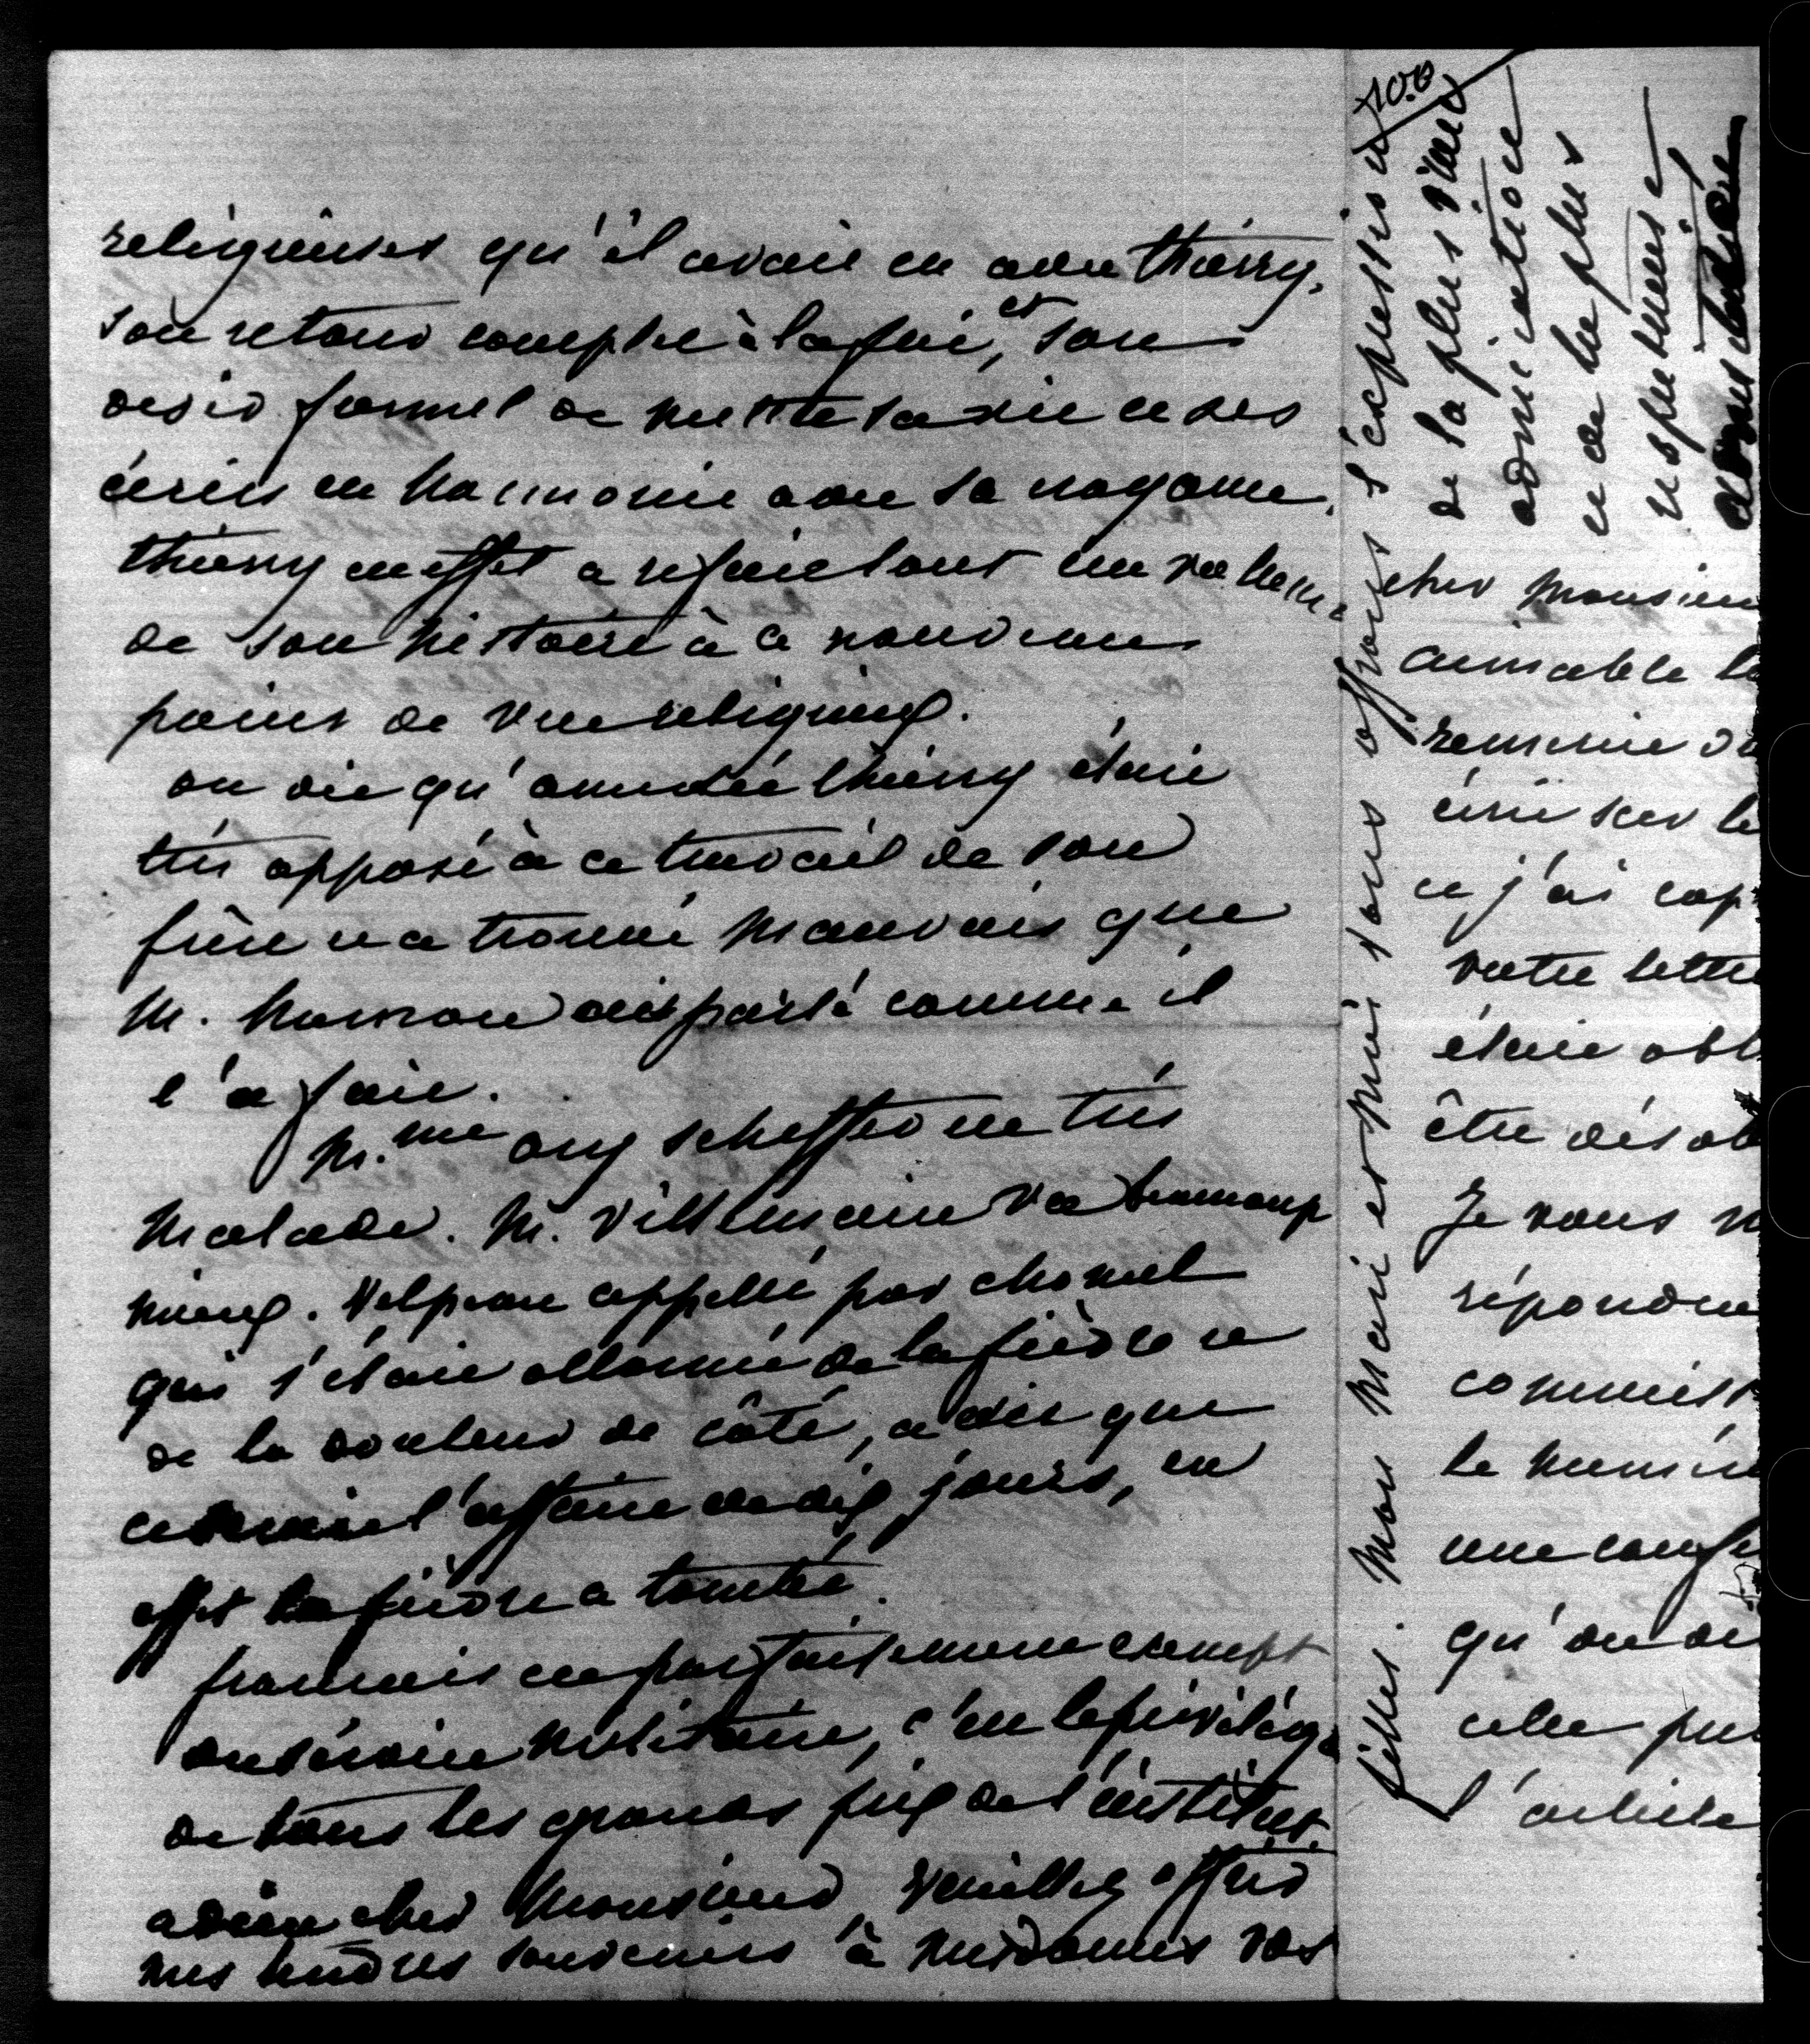 religieuses qu'il avait eu avec thierry,
son retour complet à la foi, et son
désir formel de mettre sa vie et ses
écrits en harmonie avec sa croyance.
thierry en effet a refait tout un volume
de son histoire à ce nouveau
point de vue religieux.
on dit qu'amédée thierry était
très opposé à ce travail de son
frère et a trouvé mauvais que
M. hamon ait parlé comme il
l'a fait.
M.me ary scheffer est très
malade. M. Villemain va beaucoup
mieux. Velpeau appellé par chomel
qui s'était allarmé de la fièvre et
de la douleur de côté, a dit que
l'affaire de dix jours, en
effet la fièvre a tombé.
francois est parfaitement exempt
du service militaire, c'est le privilège
de tous les grands prix de l'institut.
adieu cher Monsieur, veuillez offrir
mes tendres souvenirs à mesdames vos
filles. Mon mari et moi vous offrons l'expression
de la plus vive
admiration
et de la plus
respectueuse
cher Monsieur
aimable
remercie
écrit sur le
et j'ai
votre lettre
était
être
Je vous
répondre
le
une
qu'on
cette
l'article